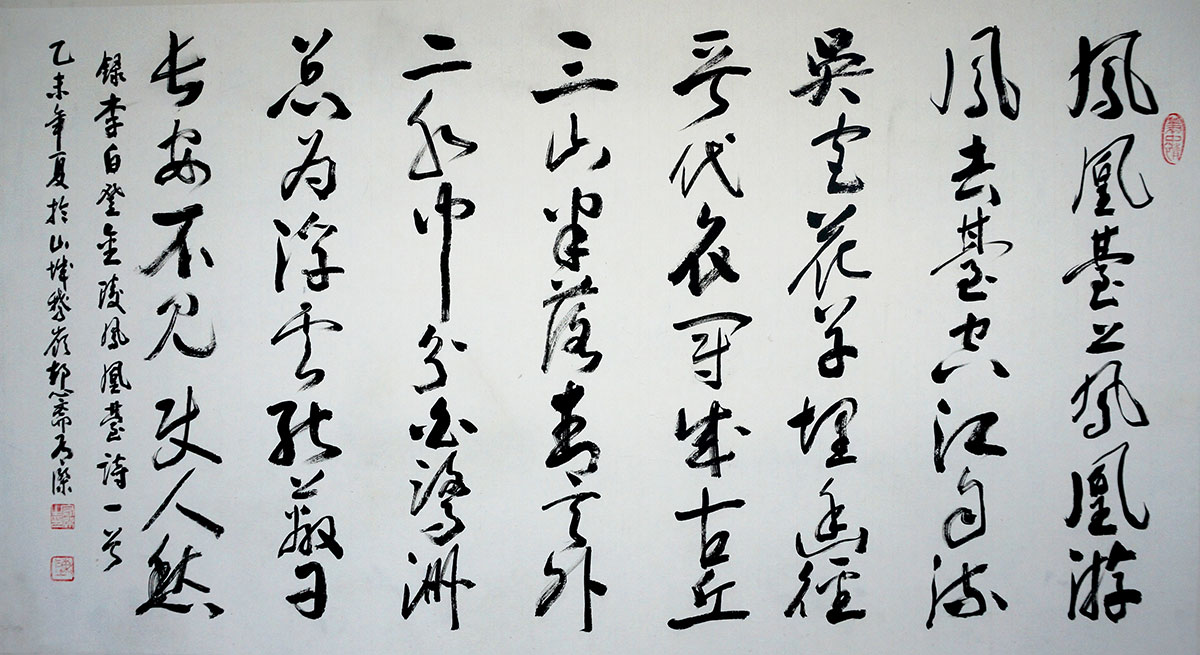 鳳凰臺上鳳凰游
鳳去臺空江自流
吳宮花草埋幽徑
晉代衣冠成古丘
三山半落青天外
二水中分白鷺洲
总为浮云能蔽日
長安不見使人愁
録李白登金陵鳳凰臺詩一首
乙未年夏於山城鵝嶺